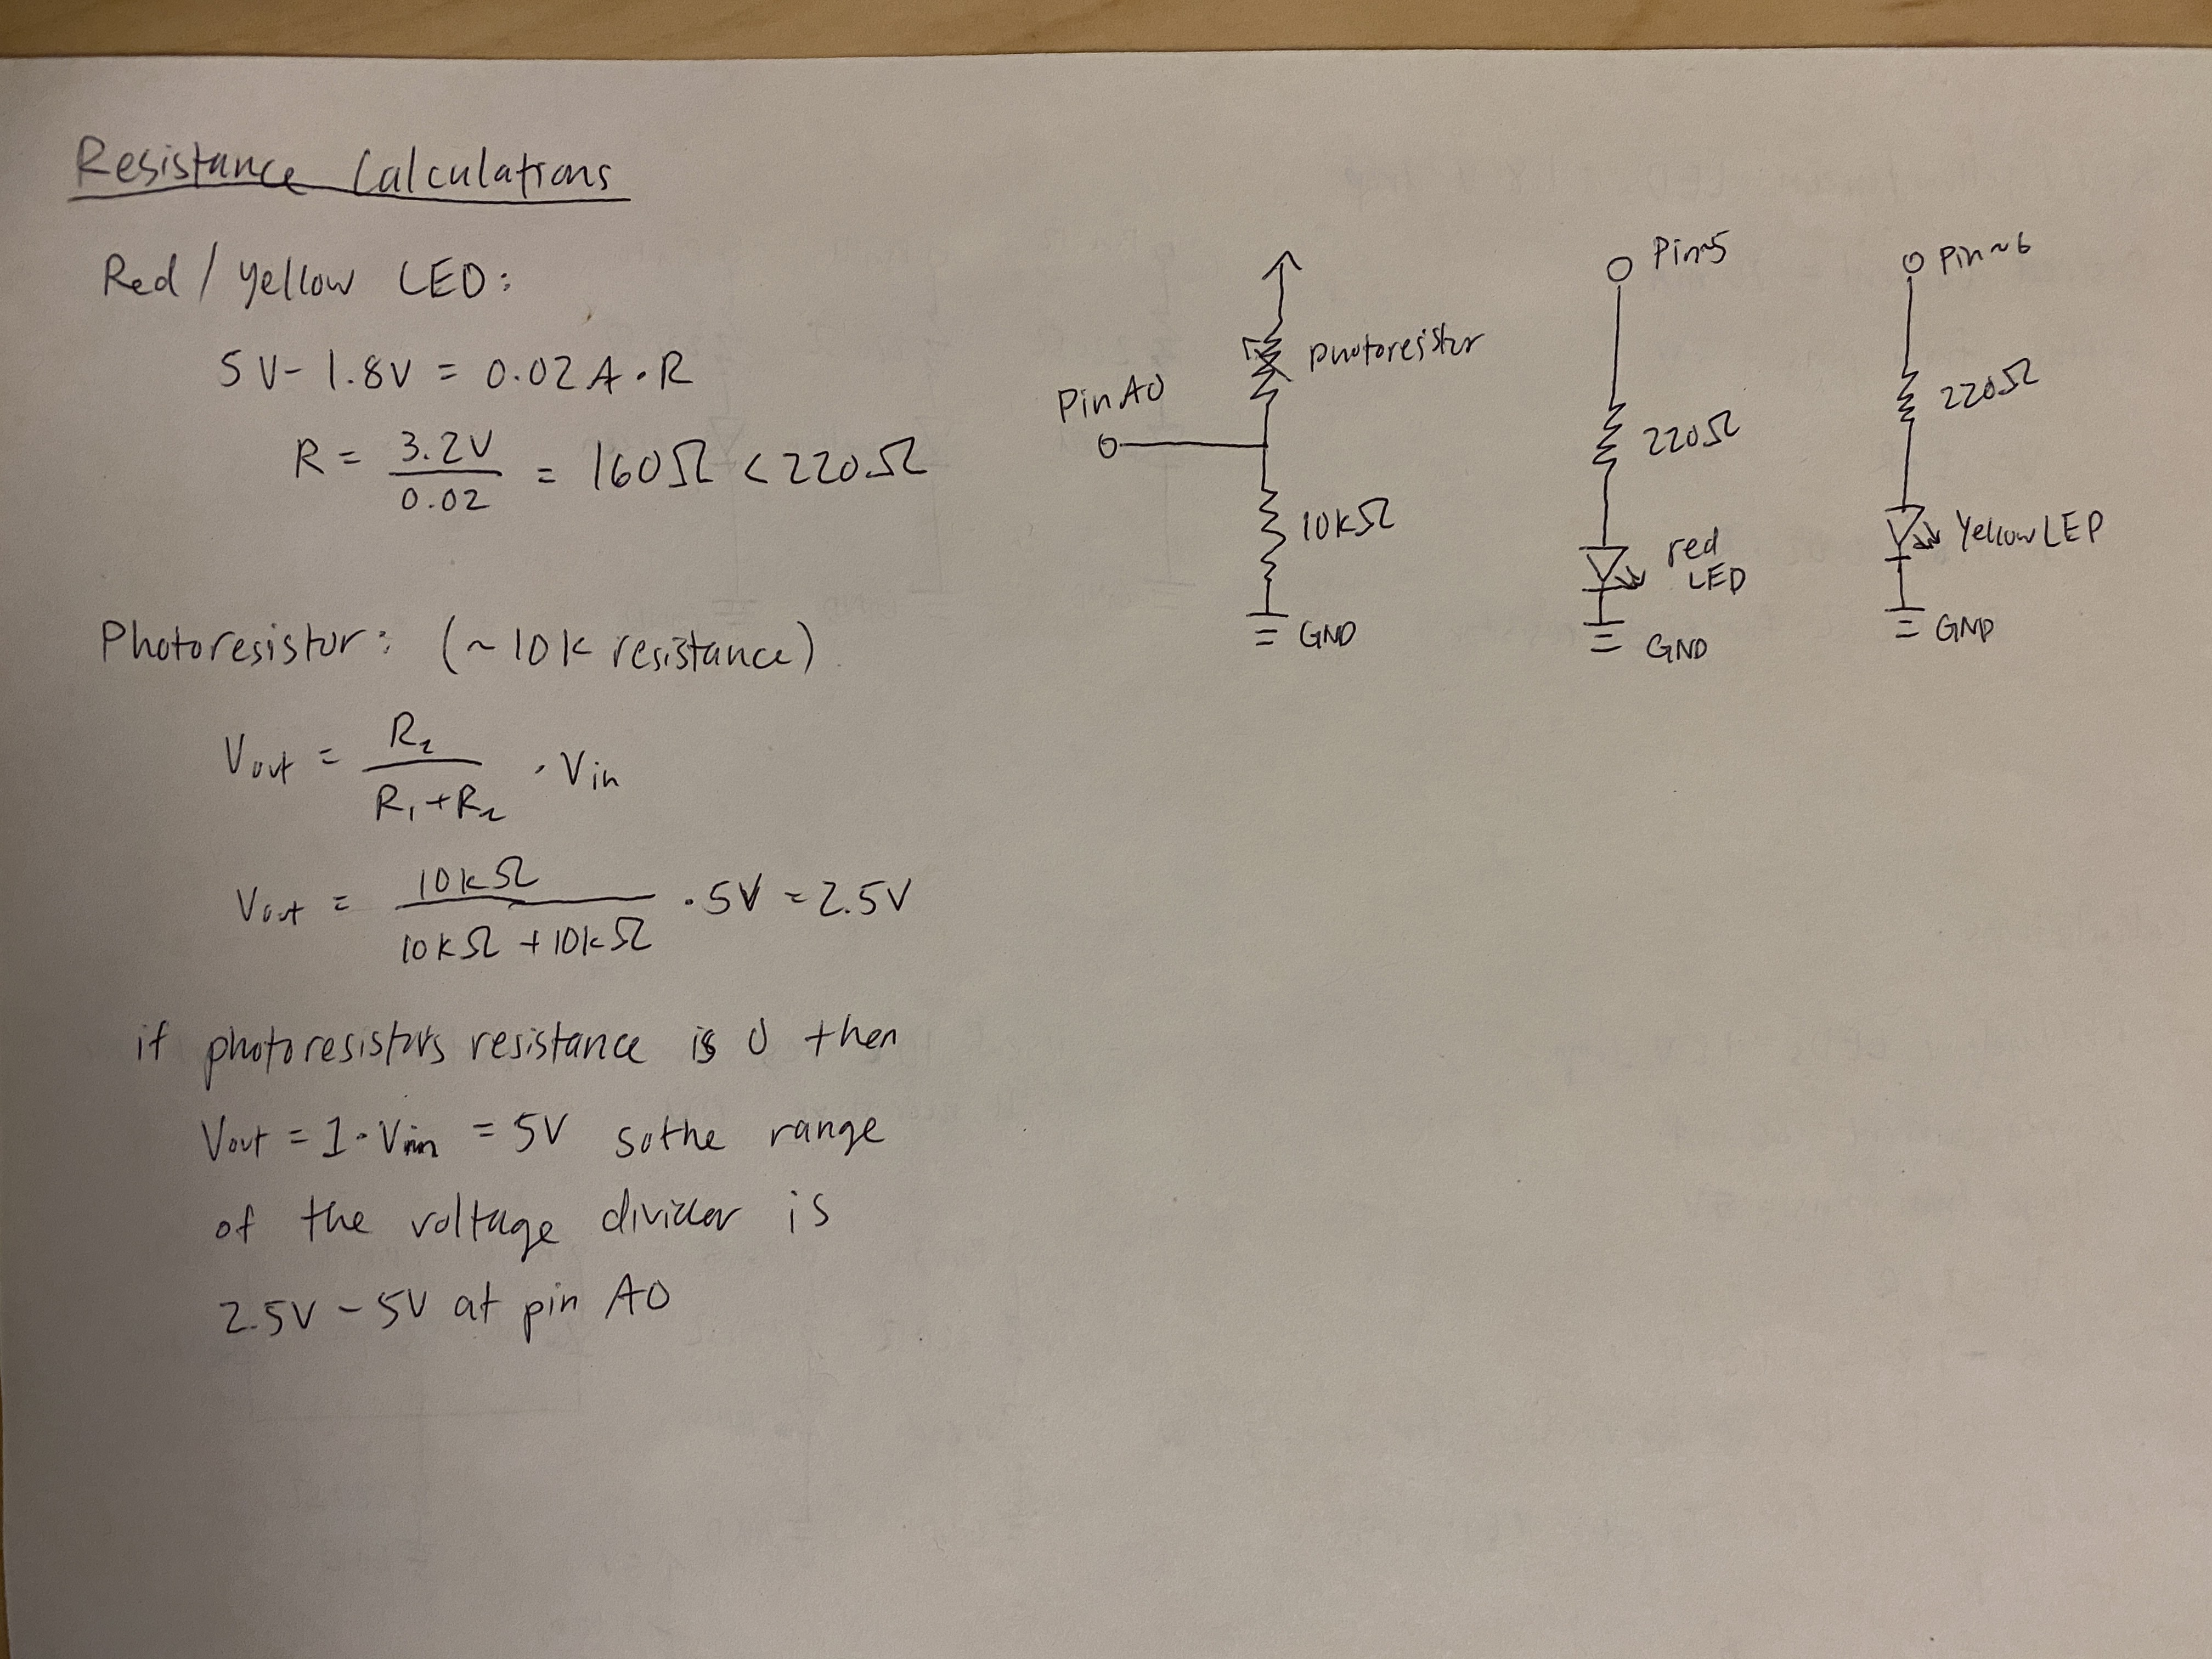 Resistance Calculations
Red / Yellow LED:
5V - 1.8V = 0.02A · R
R = 3.2V / 0.02 = 160Ω < 220Ω
Photoresistor: (~10k resistance)
Vout = R2 / R1+R2 · Vin
Vout = 10kΩ / 10kΩ + 10kΩ · 5V = 2.5V
if photoresistors resistance is 0 then
Vout = 1 · Vin = 5V so the range
of the voltage divider is
2.5V - 5V at pin A0
photoresistor
Pin A0
10kΩ
GND
Pin~5
220Ω
red
LED
GND
Pin~6
220Ω
Yellow LED
GND